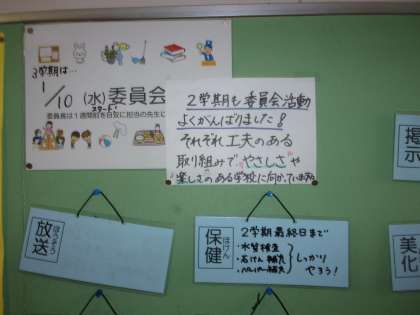 3学期は…
1/10(水)委員会
スタート!
委員長は1週間前を目安に担当の先生に
2学期も委員会活動
よくがんばりました!
それぞれ工夫のある
取り組みで やさしさや
楽しさのある学校に向かっています
放送
ほうそう
保健
ほけん
2学期最終日まで
・水質検査
・石けん補充
・ペーパー補充
しっかり
やろう!
掲示
美化